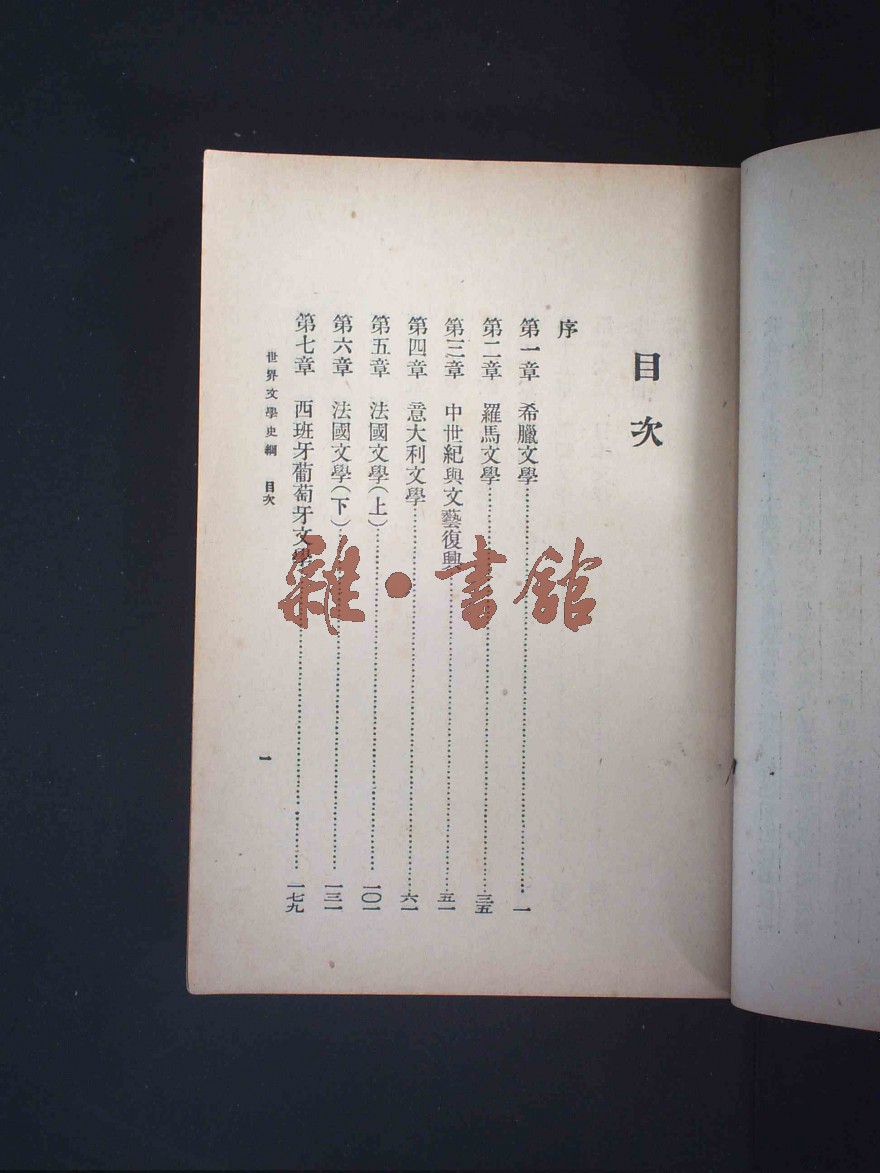 目次
序
第一章 希臘文學……一
第二章 羅馬文學……三五
第三章 中世紀與文藝復興……五一
第四章 意大利文學……六一
第五章 法國文學(上)……一〇一
第六章 法國文學(下)……一三一
第七章 西班牙葡萄牙文學……一七九
世界文學史綱 目次
一
雜·書館